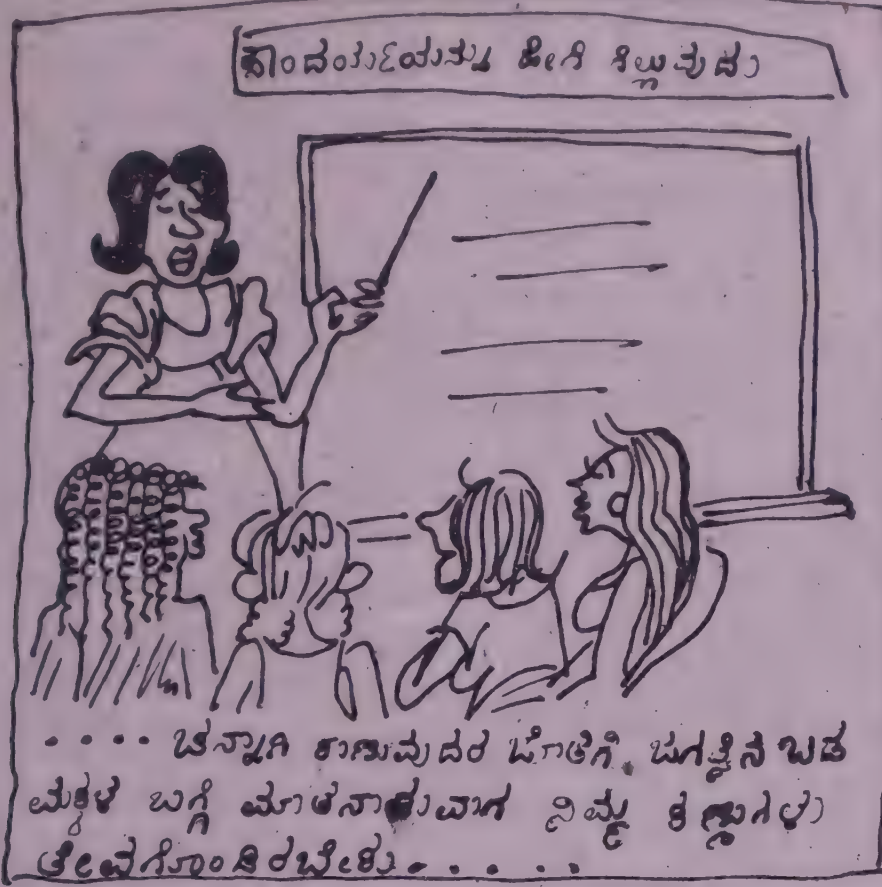 ಸೌಂದರ್ಯಯನ್ನು ಹೇಗೆ ಗೆಲ್ಲುವುದು
.... ಚೆನ್ನಾಗಿ ಕಾಣುವುದರ ಜೊತೆಗೆ, ಜಗತ್ತಿನ ಬಡ
ಮಕ್ಕಳ ಬಗ್ಗೆ ಮಾತನಾಡುವಾಗ ನಿಮ್ಮ ಕಣ್ಣುಗಳು
ತೇವಗೊಂಡಿರಬೇಕು.....